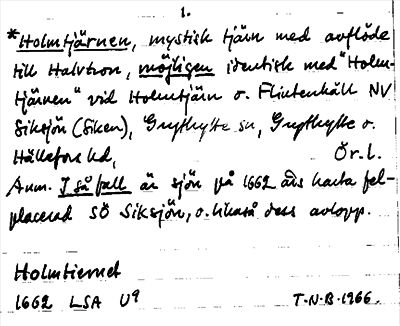 1.
*Holmtjärnen, mystisk tjärn med avflöde
till Halvtron, möjligen identisk med "Holm-
tjärnen" vid Holmtjärn o. Flintenhäll NV
Siksjön (Siken), Grythytte sn, Grythytte o.
Hällefors hd, Ör. l.
Anm. I så fall är sjön på 1662 års karta fel-
placerad SÖ Siksjön, o. likaså dess avlopp.
Holmtiernet
1662 LSA U9 T.N.B. 1966.